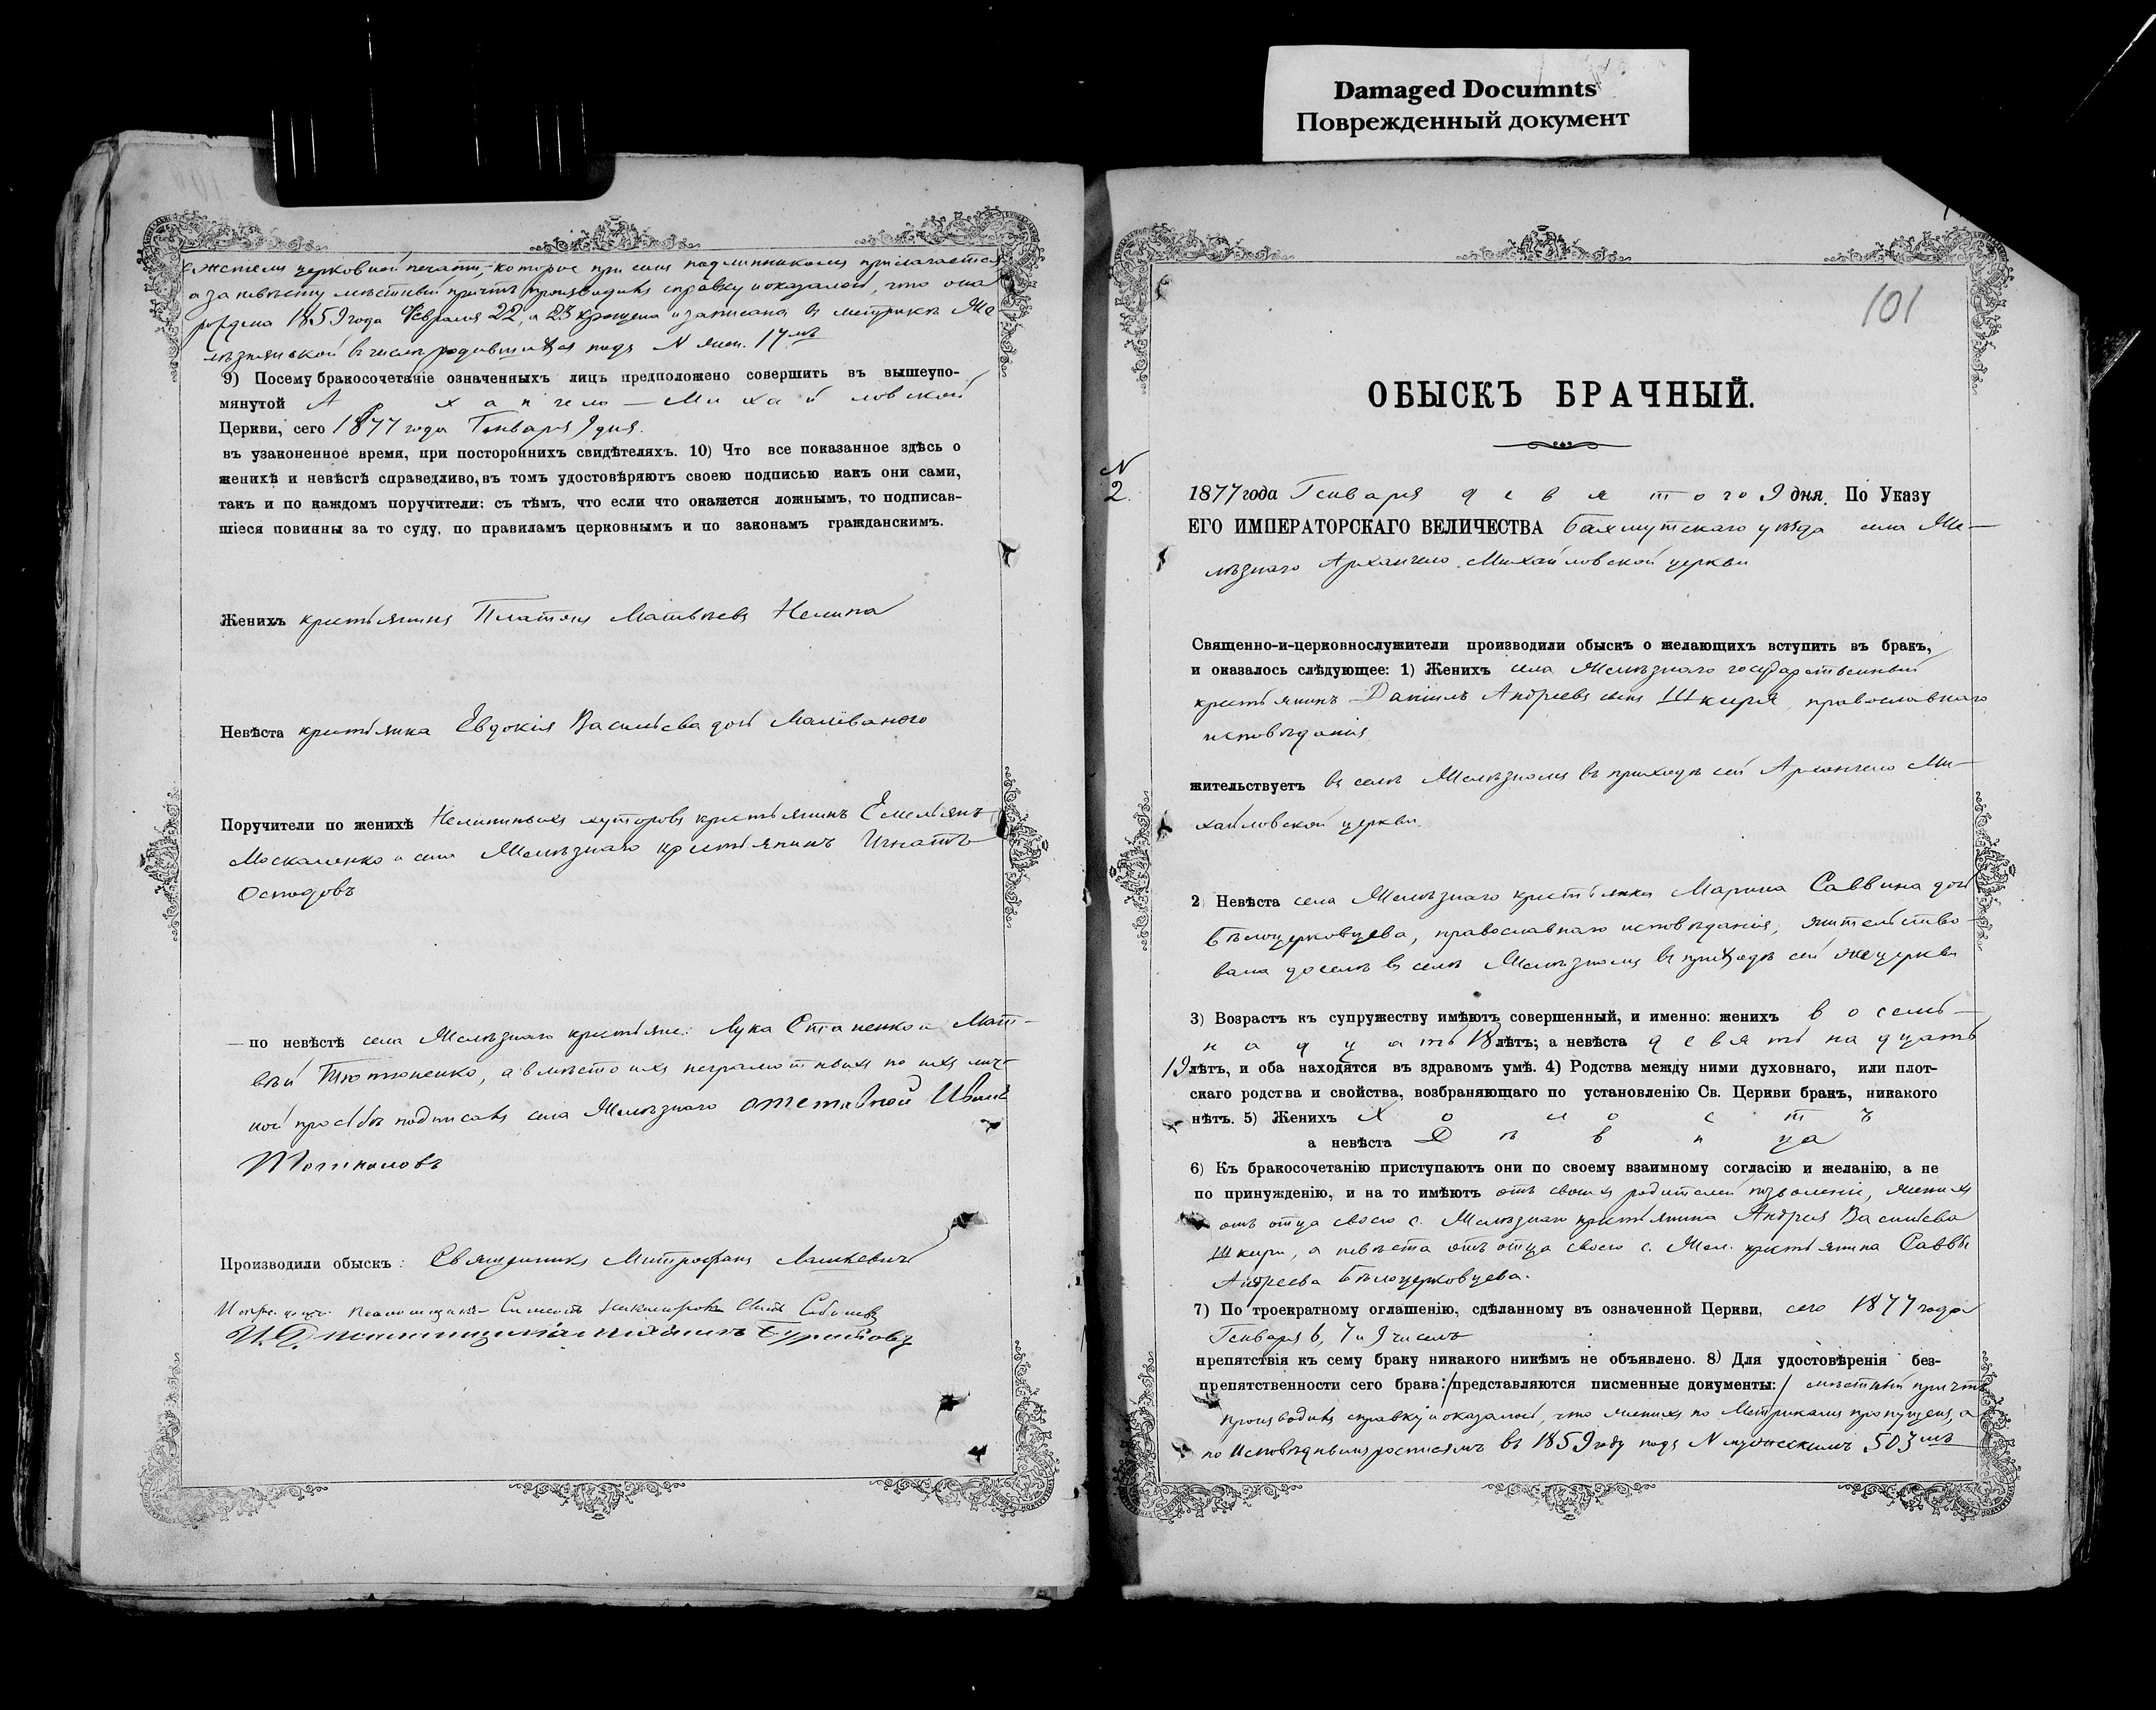 Damaged Documnts
Поврежденный документ
церковной печати, которое при семъ подлинникомъ прилагается
а за невѣсту мѣстный причтъ производилъ справку и оказалось, что она
рождена 1859 года Февраля 22, а 23 крещена и записана въ метрикѣ Же
лѣзнянской въ числѣ родившихся подъ N жен. 17мъ
9) Посему бракосочетаніе означенныхъ лицъ предположено совершить въ вышеупо-
мянутой Архангело-Михайловской
Церкви, сего 1877 года Генваря 9 дня.
въ узаконенное время, при постороннихъ свидѣтеляхъ. 10) Что все показанное здѣсь о
женихѣ и невѣстѣ справедливо, въ томъ удостовѣряютъ своею подписью какъ они сами,
такъ и по каждомъ поручители: съ тѣмъ, что если что окажется ложнымъ, то подписав-
шіеся повинны за то суду, по правиламъ церковнымъ и по законамъ гражданскимъ.
Женихъ крестьянинъ Платонъ Матвѣевъ Нелипа
Невѣста крестьянка Евдокія Васильева дочь Малёваного
Поручители по женихѣ Нелипиныхъ хуторовъ крестьянинъ Емельянъ
Москаленко и села Желѣзнаго крестьянинъ Игнатъ
— по невѣстѣ села Желѣзнаго крестьяне: Лука Стаценко и Мат-
вѣй Тютюненко, а вмѣсто ихъ неграмотныхъ по ихъ лич-
ной просьбѣ подписалъ села Желѣзнаго отставной
Производили обыскъ: Священникъ Митрофанъ Лашкевичъ
101
ОБЫСКЪ БРАЧНЫЙ.
N
2.
1877 года Генваря девятого 9 дня. По Указу
ЕГО ИМПЕРАТОРСКАГО ВЕЛИЧЕСТВА Бахмутскаго уѣзда села Же-
лѣзнаго Архангело-Михайловской церкви
Священно-и-церковнослужители производили обыскъ о желающихъ вступить въ бракъ,
и оказалось слѣдующее: 1) Женихъ села Желѣзнаго государственный
крестьянинъ Даніилъ Андреевъ сынъ Шкиря, православнаго
исповѣданія
жительствуетъ въ селѣ Желѣзномъ въ приходѣ сей Архангело Ми-
хайловской церкви.
2 Невѣста села Желѣзнаго крестьянка Марина Саввина дочь
Бѣлоцерковцева, православнаго исповѣданія, жительство-
вала доселѣ въ селѣ Желѣзномъ въ приходѣ сей же церкви
3) Возрастъ къ супружеству имѣютъ совершенный, и именно: женихъ восемь-
надцать 18 лѣтъ; а невѣста девятьнадцать
19 лѣтъ, и оба находятся въ здравомъ умѣ. 4) Родства между ними духовнаго, или плот-
скаго родства и свойства, возбраняющаго по установленію Св. Церкви бракъ, никакого
нѣтъ. 5) Женихъ Холостъ
а невѣста Дѣвица
6) Къ бракосочетанію приступаютъ они по своему взаимному согласію и желанію, а не
по принужденію, и на то имѣютъ отъ своихъ родителей позволеніе, женихъ
отъ отца своего с. Желѣзнаго крестьянина Андрея Васильева
Шкири, а невѣста отъ отца своего с. Жел. крестьянина Саввы
Андреева Бѣлоцерковцева.
7) По троекратному оглашенію, сдѣланному въ означенной Церкви, сего 1877 года
Генваря 6, 7 и 9 числъ
препятствія къ сему браку никакого никѣмъ не объявлено. 8) Для удостовѣренія без-
препятственности сего брака:/представляются писменные документы:/ мѣстный причтъ
производилъ справку и оказалось, что женихъ по Метрикамъ пропущенъ, а
по Исповѣднымъ росписямъ въ 1859 году подъ N мужескимъ 503мъ